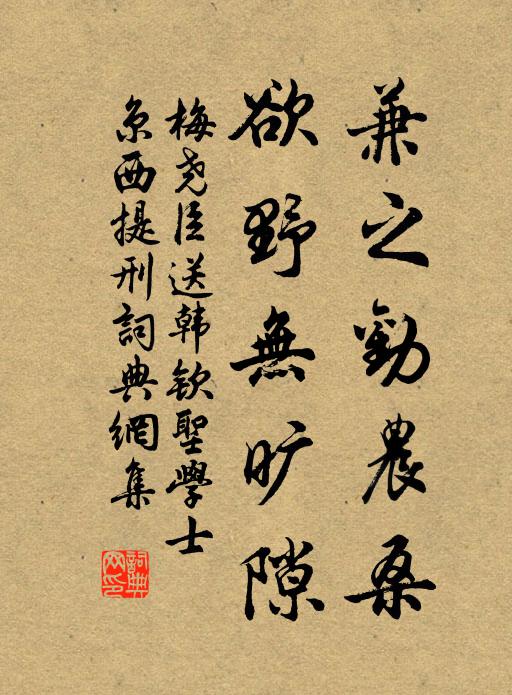 兼之勸農桑
欲野無旷隙
梅尧臣送韩钦聖學士
京西提刑詞典網集
詞典网印